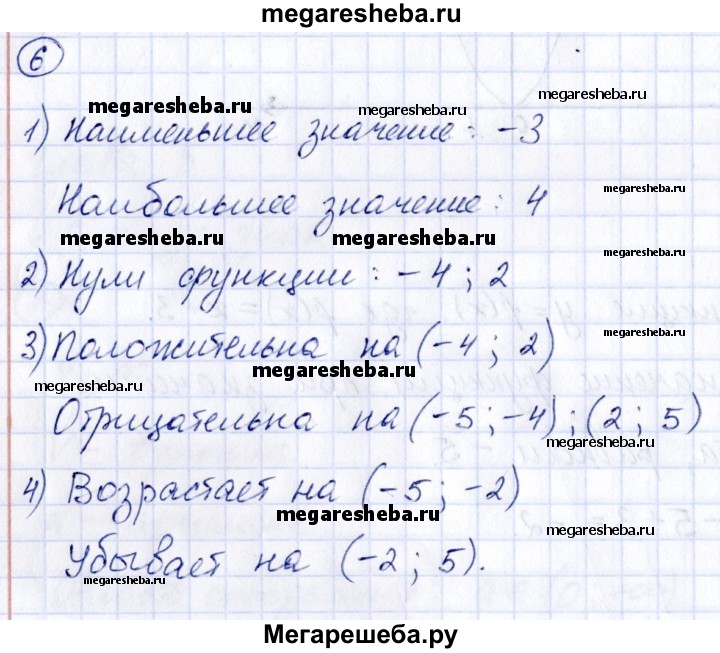 megaresheba.ru
6
megaresheba.ru
megaresheba.ru
megaresheba.ru
1) Наименьшее значение: -3
Наибольшее значение: 4
megaresheba.ru
megaresheba.ru
megaresheba.ru
2) Нули функции: -4; 2
megaresheba.ru
3) Положительна на (-4; 2)
megaresheba.ru
megaresheba.ru
Отрицательна на (-5; -4); (2; 5)
megaresheba.ru
4) Возрастает на (-5; -2)
megaresheba.ru
Убывает на (-2; 5).
megaresheba.ru
megaresheba.ru
Мегарешеба.ру